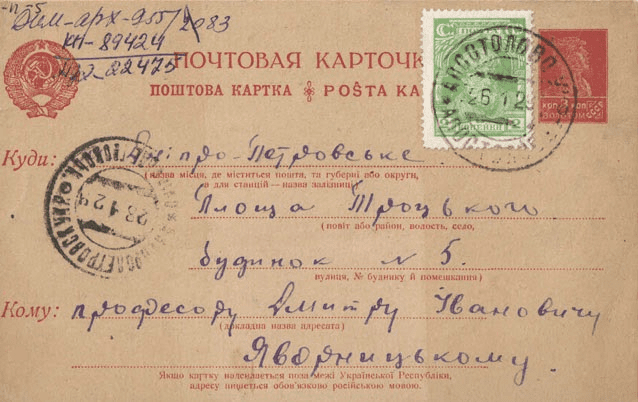 Дим-арх-955/2083
КП-89424
22475
ПОЧТОВАЯ КАРТОЧК
ПОШТОВА КАРТКА ❋ POŜTA KA
Куди: Дніпро-Петровське
(назва місця, де міститься пошта, та губерні або округи,
а для станцій — назва залізниці)
Площа Троцького
(повіт або район, волость, село,
будинок № 5.
вулиця, № будинку й помешкання)
Кому: професору Дмитру Івановичу
(докладна назва адресата)
Яворницькому.
Якщо картку надсилається поза межі Української Республіки,
адресу пишеться обов'язково російською мовою.
26 1 2
28 1 2